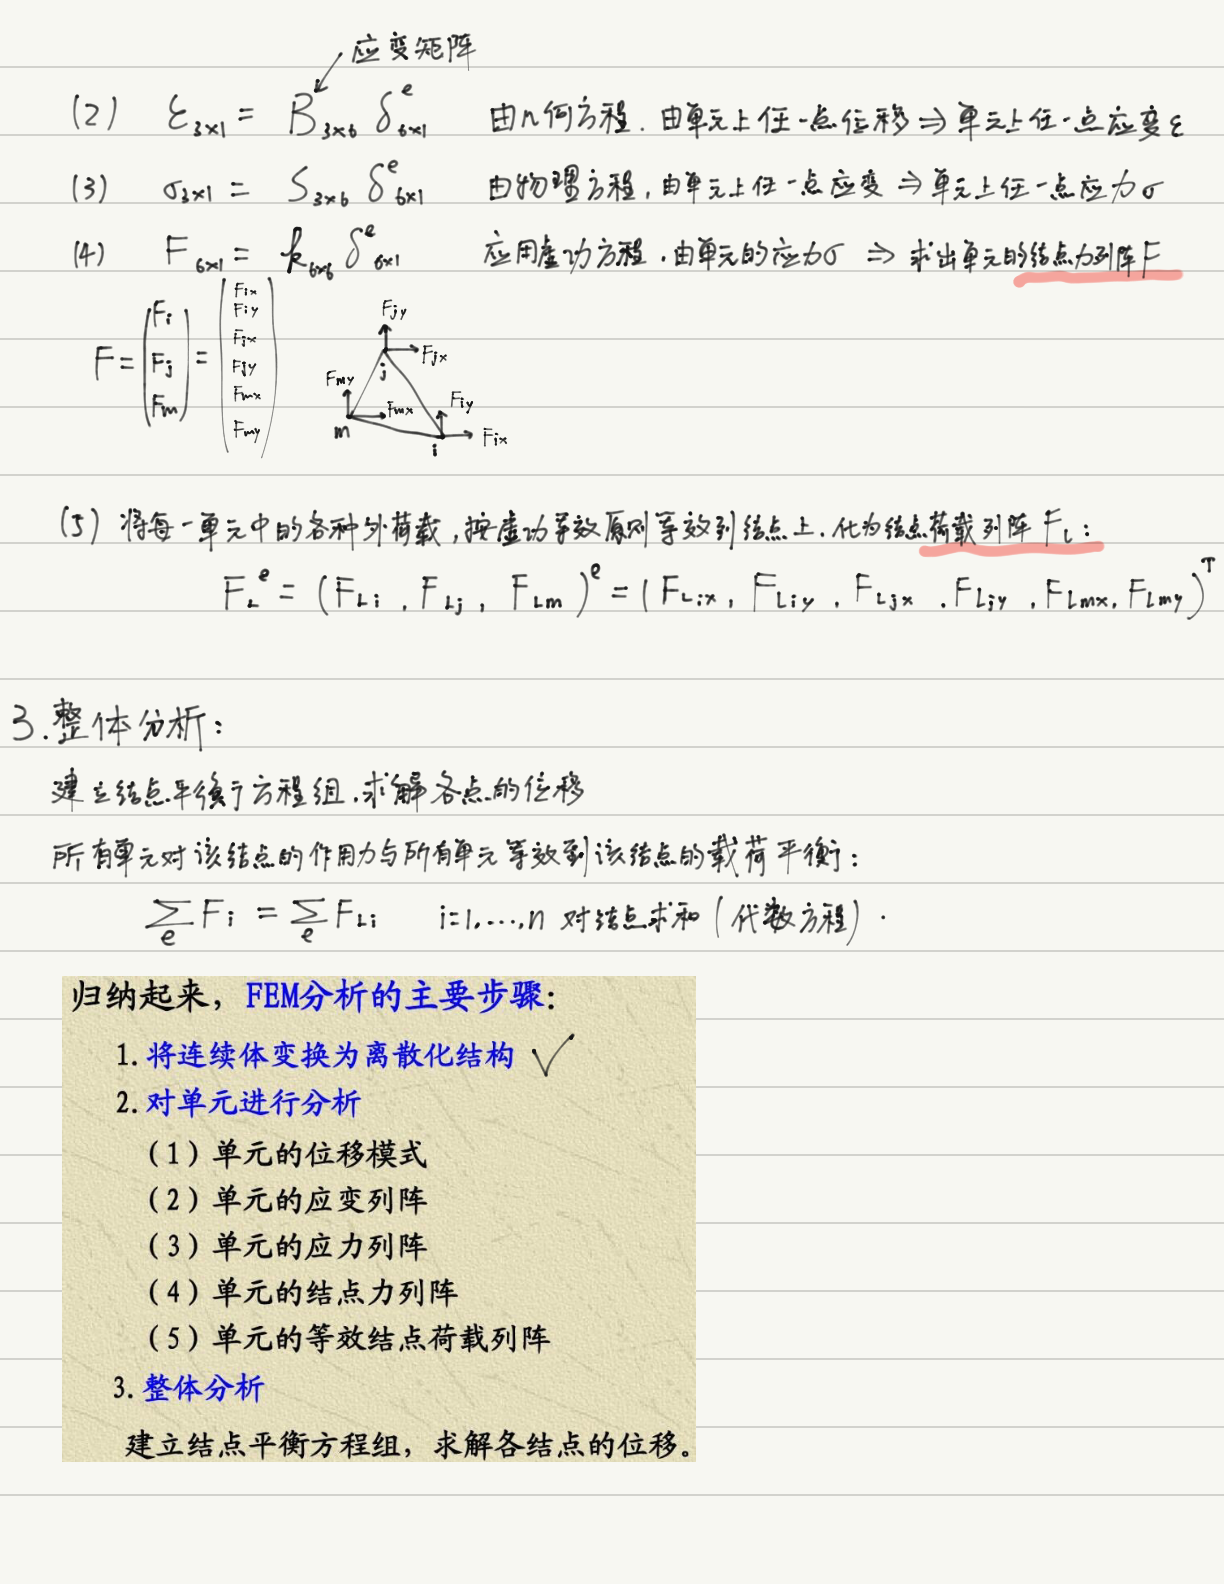 应变矩阵
(2) ε₃ₓ₁ = B₃ₓ₆ δᵉ₆ₓ₁ 由几何方程.由单元上任一点位移⇒单元上任一点应变ε
(3) σ₃ₓ₁ = S₃ₓ₆ δᵉ₆ₓ₁ 由物理方程,由单元上任一点应变⇒单元上任一点应力σ
(4) F₆ₓ₁ = k₆ₓ₆ δᵉ₆ₓ₁ 应用虚功方程.由单元的应力σ ⇒ 求出单元的结点力列阵F
F = (Fi Fj Fm) = (Fix Fiy Fjx Fjy Fmx Fmy)
Fjy
Fjx
j
Fmy
Fmx
Fiy
m
i
Fix
(5) 将每一单元中的各种外荷载,按虚功等效原则等效到结点上.化为结点荷载列阵 F_L:
F_L^e = (F_Li , F_Lj , F_Lm)^e = (F_Lix, F_Liy , F_Ljx . F_Ljy , F_Lmx, F_Lmy)^T
3.整体分析:
建立结点平衡方程组.求解各点的位移
所有单元对该结点的作用力与所有单元等效到该结点的载荷平衡:
∑_e F_i = ∑_e F_Li i=1,...,n 对结点求和(代数方程).
归纳起来,FEM分析的主要步骤:
1. 将连续体变换为离散化结构 ✓
2. 对单元进行分析
(1)单元的位移模式
(2)单元的应变列阵
(3)单元的应力列阵
(4)单元的结点力列阵
(5)单元的等效结点荷载列阵
3. 整体分析
建立结点平衡方程组,求解各结点的位移。